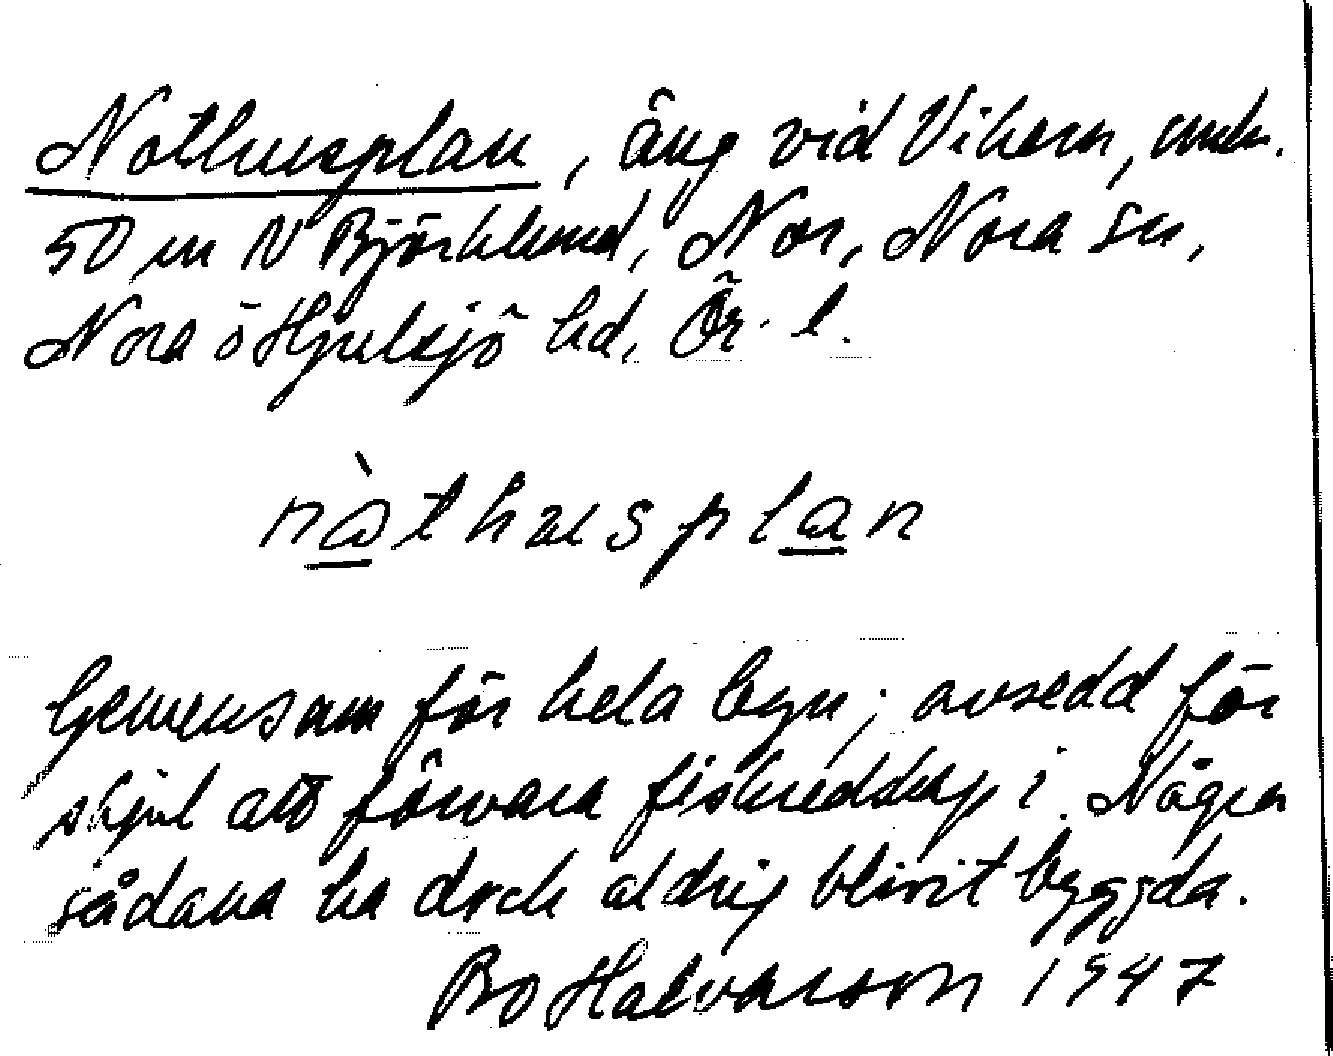 Nothusplan, äng vid Vikern, omkr.
50 m N Björklund, Nor, Nora sn,
Nora ö Hjulsjö hd, Ör. l.
nàthusplan
Gemensam för hela byn; avsedd för
skjul att förvara fiskredskap i. Några
sådana ha dock aldrig blivit byggda.
Bo Halvarson 1947